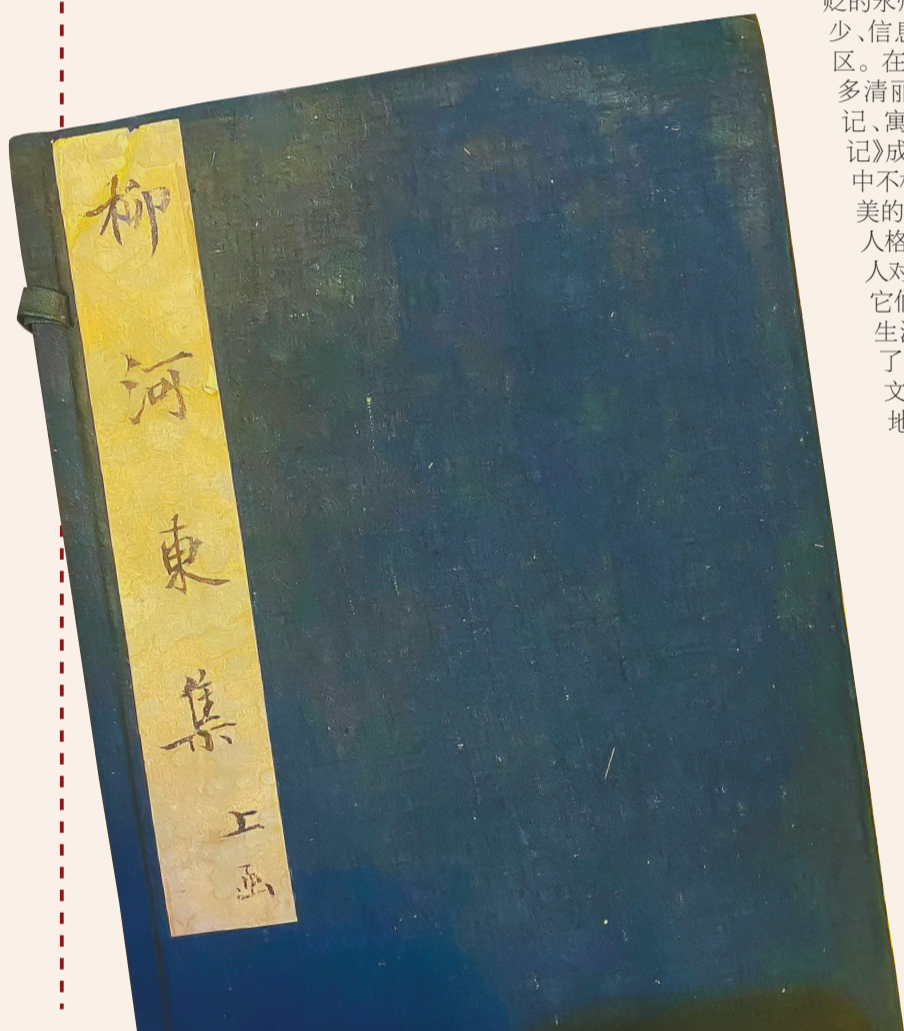 柳河東集
上函
少、信息
区。在
多清丽
记、寓
记》成
中不
美的
人格
人对
它们
生
了
文
地